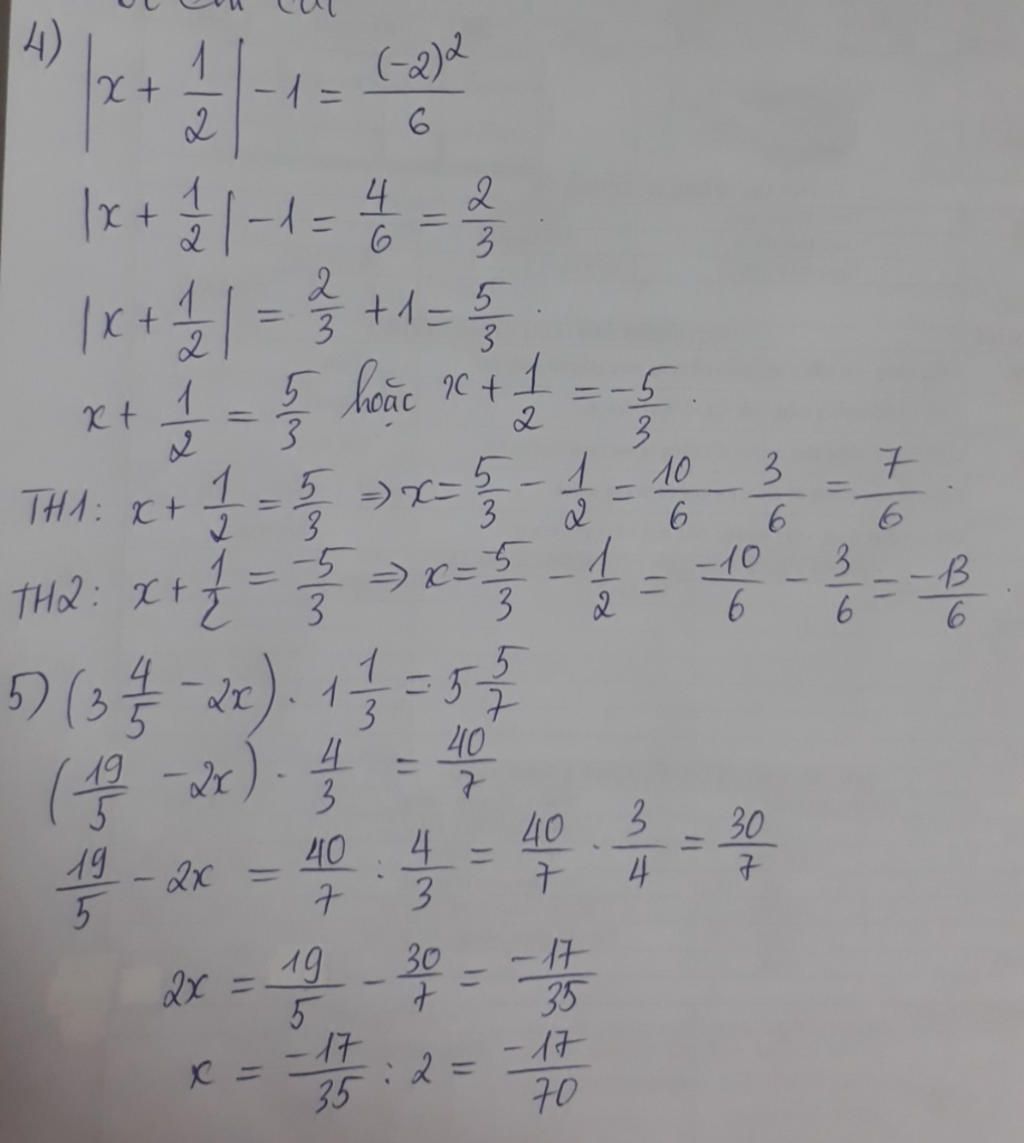 4) |x + 1/2| - 1 = (-2)²/6
|x + 1/2| - 1 = 4/6 = 2/3 .
|x + 1/2| = 2/3 + 1 = 5/3 .
x + 1/2 = 5/3 hoặc x + 1/2 = -5/3 .
TH1: x + 1/2 = 5/3 ⇒ x = 5/3 - 1/2 = 10/6 - 3/6 = 7/6 .
TH2: x + 1/2 = -5/3 ⇒ x = -5/3 - 1/2 = -10/6 - 3/6 = -13/6 .
5) (3 4/5 - 2x) . 1 1/3 = 5 5/7
(19/5 - 2x) . 4/3 = 40/7
19/5 - 2x = 40/7 : 4/3 = 40/7 . 3/4 = 30/7
2x = 19/5 - 30/7 = -17/35
x = -17/35 : 2 = -17/70